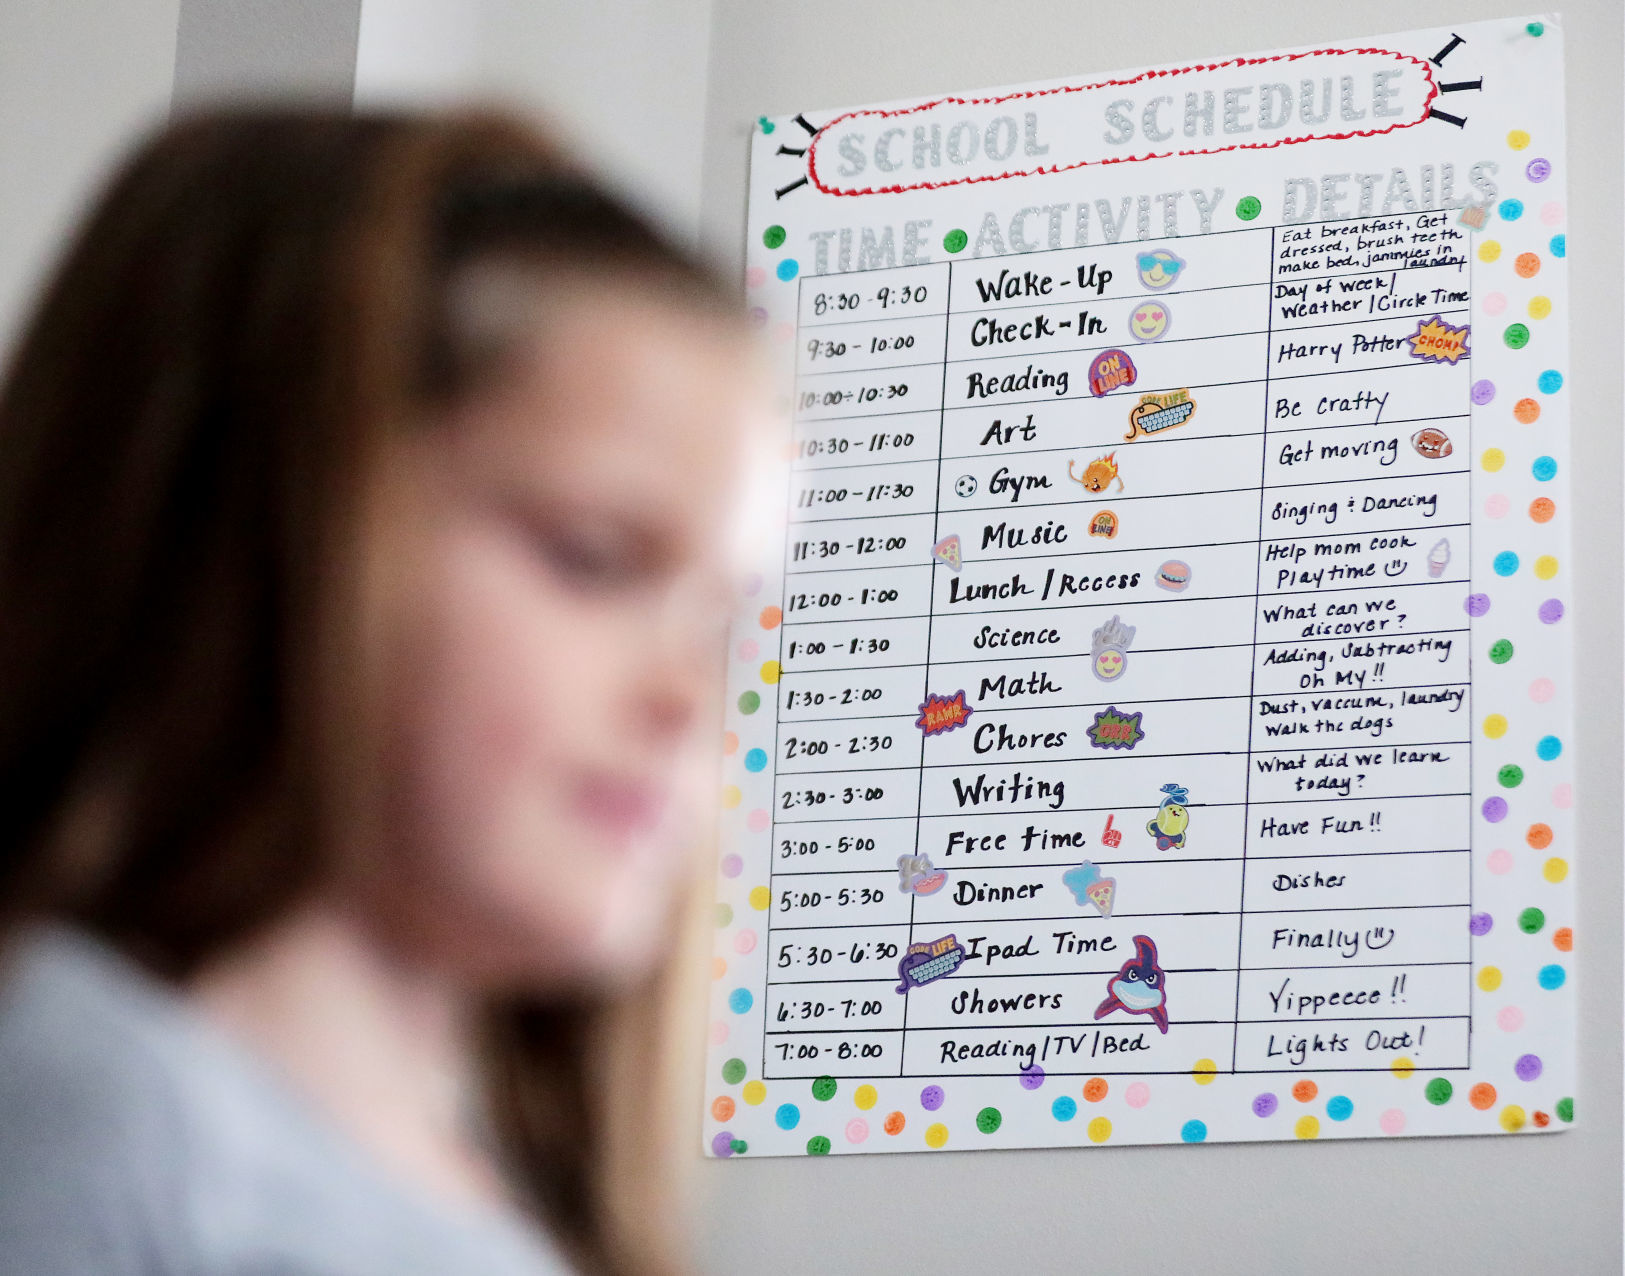 SCHOOL SCHEDULE
TIME ACTIVITY DETAILS
8:30 - 9:30 Wake-Up Eat breakfast, Get
dressed, brush teeth
make bed, jammies in
laundry
9:30 - 10:00 Check-In Day of week/
Weather / Circle Time
10:00 ÷ 10:30 Reading ON LINE! Harry Potter CHOMP
10:30 - 11:00 Art CODE LIFE Be crafty
11:00 - 11:30 Gym Get moving
11:30 - 12:00 Music ON LINE! Singing & Dancing
12:00 - 1:00 Lunch / Recess Help mom cook
Playtime
1:00 - 1:30 Science What can we
discover?
1:30 - 2:00 Math Adding, Subtracting
Oh My!!
RAWR
2:00 - 2:30 Chores GRR Dust, vaccume, laundry
Walk the dogs
2:30 - 3:00 Writing What did we learn
today?
3:00 - 5:00 Free time Have Fun!!
5:00 - 5:30 Dinner Dishes
5:30 - 6:30 CODE LIFE Ipad Time Finally
6:30 - 7:00 Showers Yippeeee!!
7:00 - 8:00 Reading/TV/Bed Lights Out!